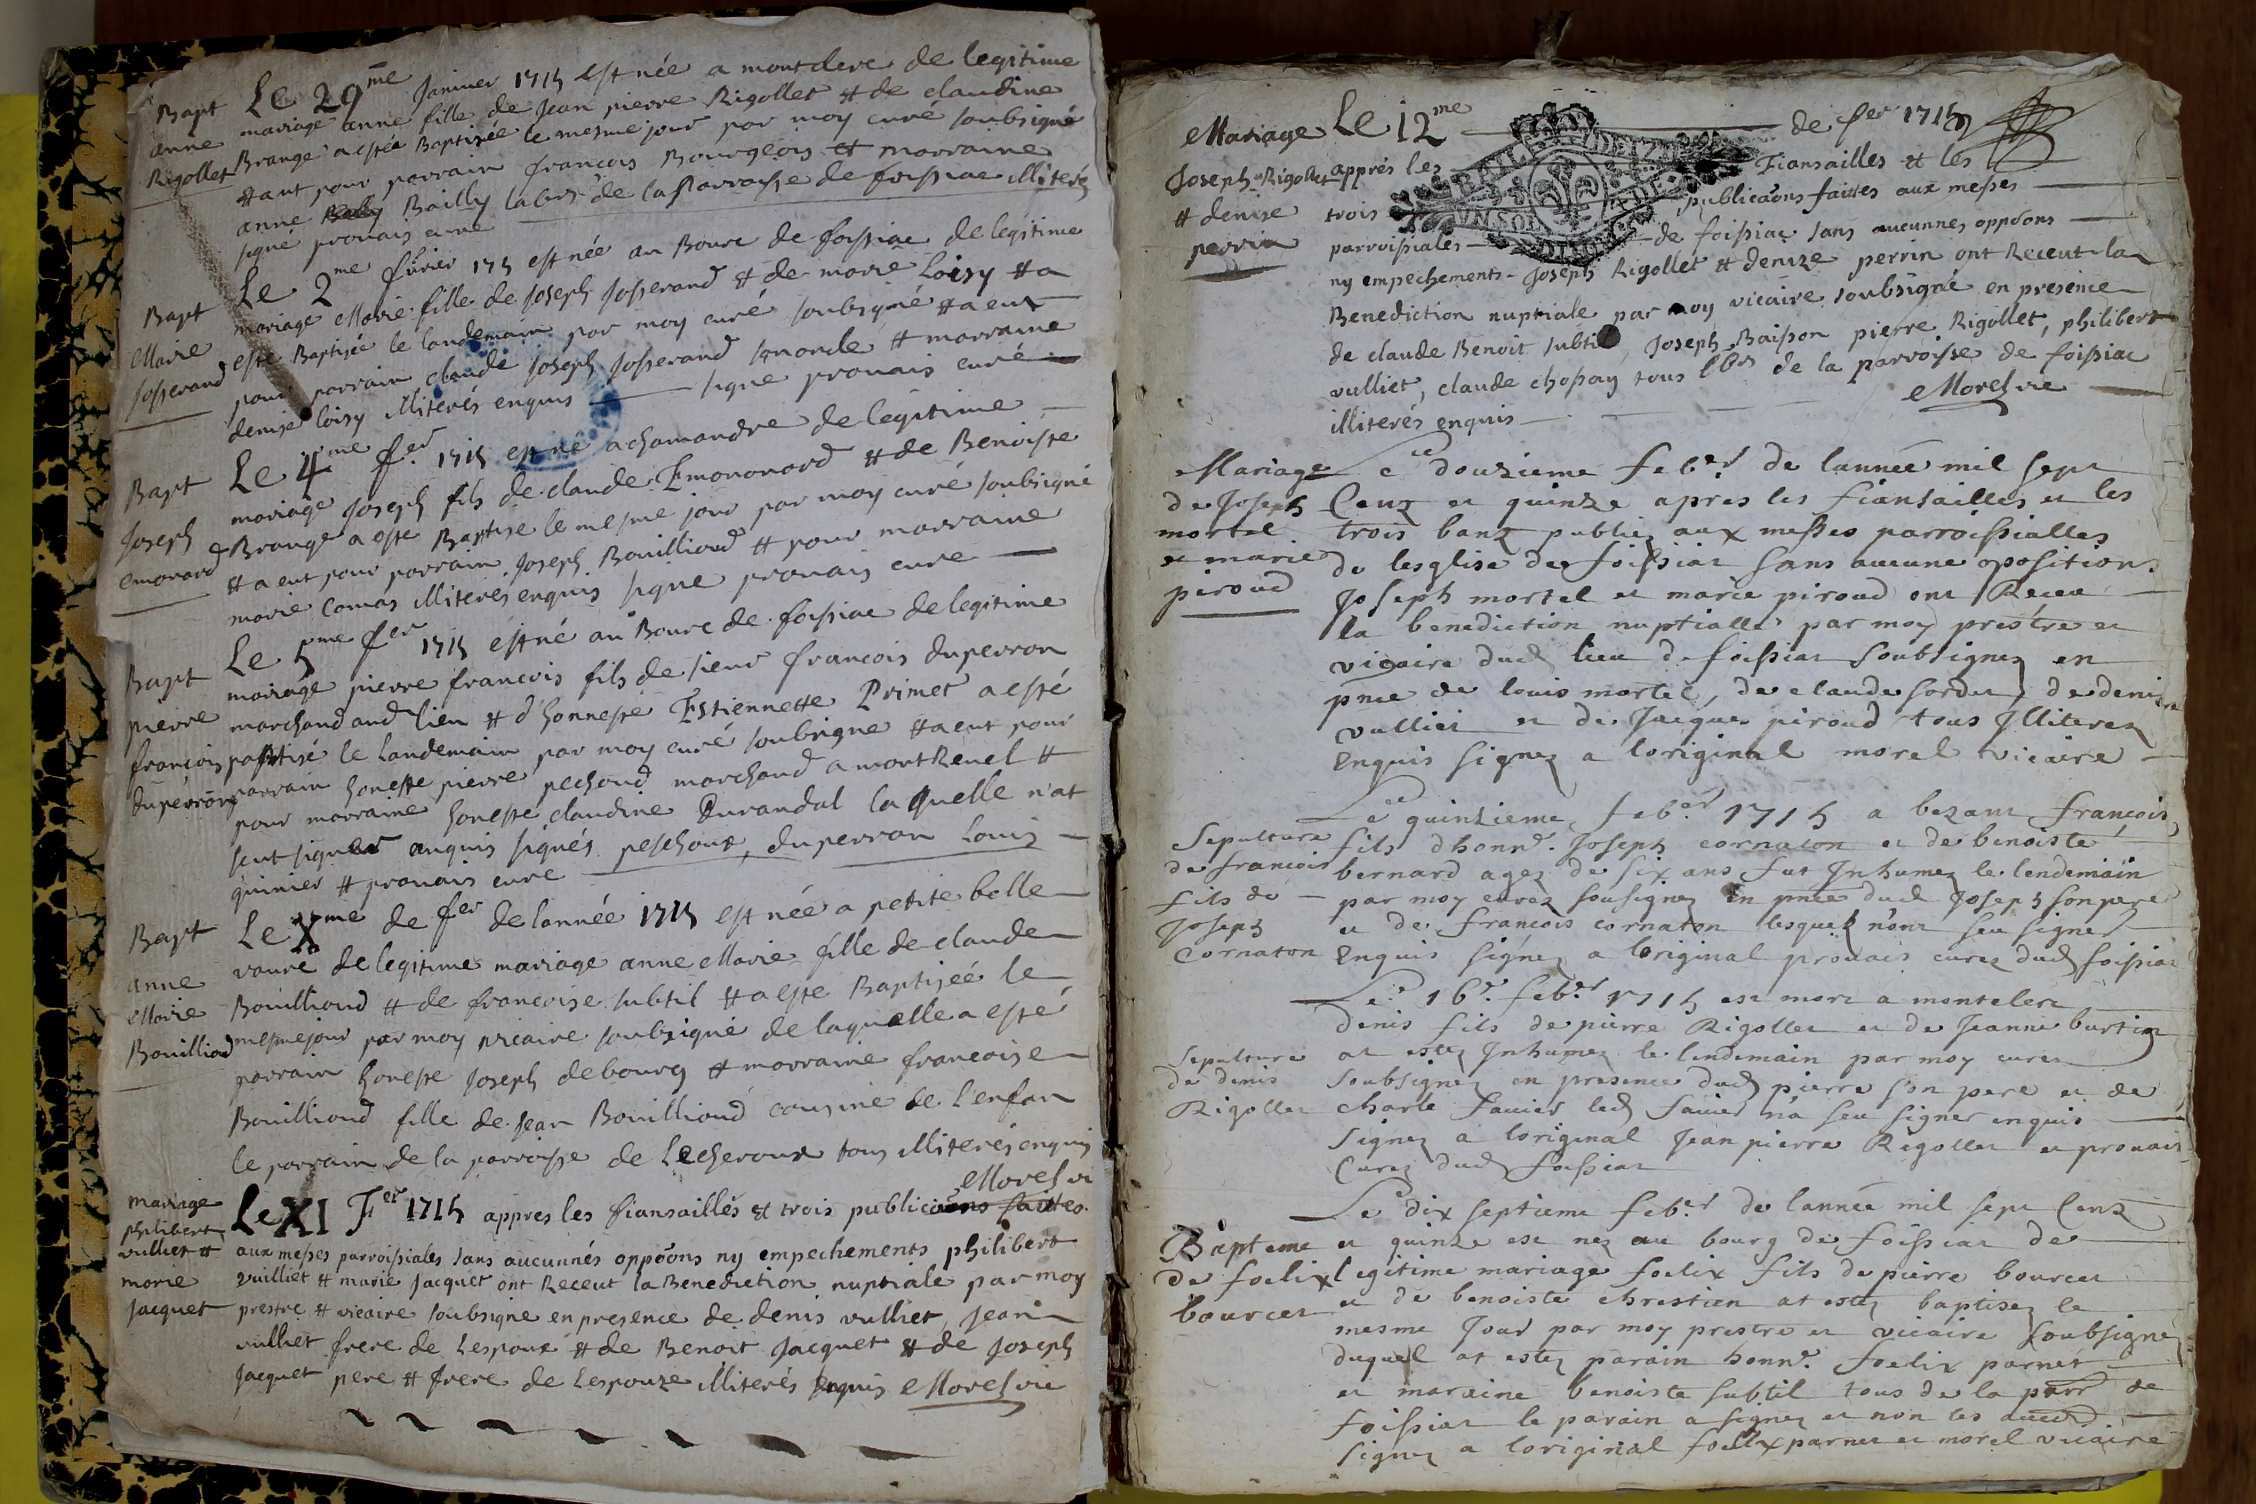 Bapt
anne
Rigollet
Le 29me Janvier 1715 est née a montclere de legitime
mariage anne fille de Jean pierre Rigollet et de claudine
Brange a estée Baptisée le mesme jour par moy curé soubsigné
et a eut pour parrain francois Bourgeois et marraine
anne Bailly labrs de la Parroisse de foissiac illiterés
signé prouais curé
Bapt
Marie
Josserand
Le 2me fevrier 1715 est née au Bourc de foissiac de legitime
mariage Marie fille de Joseph Josserand et de marie Loisy et a
esté Baptisée le landemain par moy curé soubsigné et a eut
pour parrain claude Joseph Josserand et marraine
denise loisy illiterés enquis signé prouais curé
Bapt
Joseph
emonard
Le 4me fer 1715 est né a chamandre de legitime
mariage Joseph fils de claude Emonnard et de Benoiste
Brange a esté Baptisé le mesme jour par moy curé soubsigné
et a eut pour parrain Joseph Bouillioud et pour marraine
marie Comas illiterés enquis signé prouais curé
Bapt
pierre
francois
duperron
Le 5me fer 1715 est né au Bourc de foissiac de legitime
mariage pierre francois fils de sieur francois duperron
marchand aud lieu et d'honneste Estiennette Primet a esté
paptisé le landemain par moy curé soubsigné et a eut pour
parrain honeste pierre pechoud marchand a montRevel et
pour marraine honeste claudine Durandal laquelle n'at
seut signer anquis signés peschoux, duperron Louis
quinier et prouais curé
Bapt
anne
Marie
Bouilliod
Le Xme de fer de lannée 1715 est née a petite belle
vavre de legitime mariage anne Marie fille de claude
Bouillioud et de francoise subtil et a esté Baptiseé le
mesme jour par moy vicaire soubsigné de laquelle a esté
parrain honeste Joseph debourg et marraine francoise
Bouillioud fille de Jean Bouillioud cousine de l'enfan
le parrain de la parroisse de Lecheroux tous illiterés enquis
Morel vi
mariage
philibert
vulliet et
marie
Jacquet
Le XI Fer 1715 appres les fiansaillés et trois publicaons faittes
aux messes parroissiales sans aucunnés oppoons ny empechements philibert
vuilliet et marie Jacquet ont Receut la Benediction nuptiale par moy
prestre et vicaire soubsigné en presence de denis vulliet, Jean
vulliet frere de Lespoux et de Benoit Jacquet et de Joseph
Jacquet pere et frere de Lespouze illiterés enquis Morel vic
Mariage
Joseph Rigollet
et denise
perrin
Le 12me de fer 1715
apprés les Fiansailles et les
trois publicaons faittes aux messes
parroissiales de foissiac sans aucunnes oppoons
ny empechements Joseph Rigollet et denize perrin ont Receut la
Benediction nuptiale par moy vicaire soubsigné en presence
de claude Benoit subtil, Joseph Baisson pierre Rigollet, philibert
vulliet, claude chossay tous lbrs de la parroisse de foissiac
illiterés enquis
Morel vic
Mariage
de Joseph
mortel
et marie
piroud
Ce douzieme feber de lannée mil sept
Cenz et quinze apres les fiansailles et les
trois banz publiez aux messes parroissialles
de lesglise de foissiat sans aucune oposition
Joseph mortel et marie piroud ont Receu
la benediction nuptialle par moy prestre et
vicaire dud lieu de foissiat soubsignez en
pnce de louis mortel, de claude sordet, de denis
vulliet et de Jacques piroud tous Illiterez
Enquis signez a loriginal morel vicaire
Sepulture
de francois
fils de
Joseph
Cornaton
Le quinzieme feber 1715 a bezant francois
fils d'honne. Joseph cornaton et de benoiste
bernard agez de six ans fut Inhumez le lendemain
par moy curez sousignez En pnce dud Joseph son pere
et de francois cornaton lesquels n'ont seu signer
Enquis signéz a loriginal prouais curez dud foissiat
Sepulture
de denis
Rigollet
Le 16e. feber 1715 est mort a montclere
denis fils de pierre Rigollet et de Jeanne burtin
at estez Inhumez le lendemain par moy curez
soubsignez en presence dud pierre son pere et de
charle Favier led Favier n'a seu signer enquis
signez a loriginal Jean pierre Rigollet et prouais
Curez dud foissiat
Bapteme
de foelix
bourcet
Le dix septieme feber de lannée mil sept Cenz
et quinze est nez au bourg de foissiat de
legitime mariage foelix fils de pierre bourcet
et de benoiste chrestien at estez baptisez le
mesme Jour par moy prestre et vicaire soubsignez
duquel at estez parain honne. foelix parnet
et maraine benoiste subtil tous de la parr de
foissiat le parain a signez et non les
signez a loriginal foelix parnet et morel vicaire